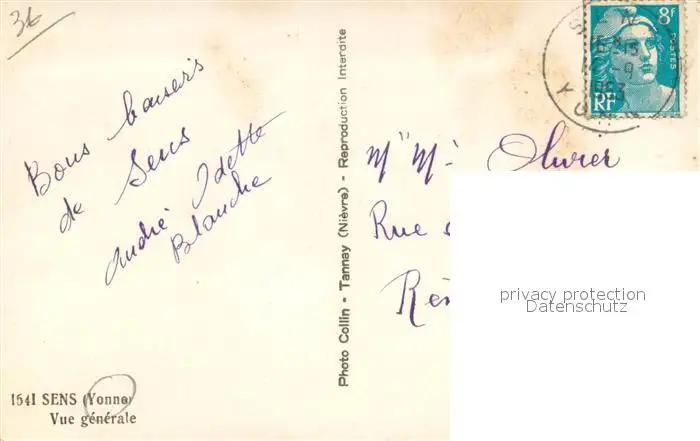 36
Bons baisers
de Sens
André Odette
Blanche
1541 SENS (Yonne)
Vue générale
Photo Collin - Tannay (Nièvre) - Reproduction Interdite
8F
POSTES
RF
YONNE
Mr Mme
Rue
privacy protection
Datenschutz